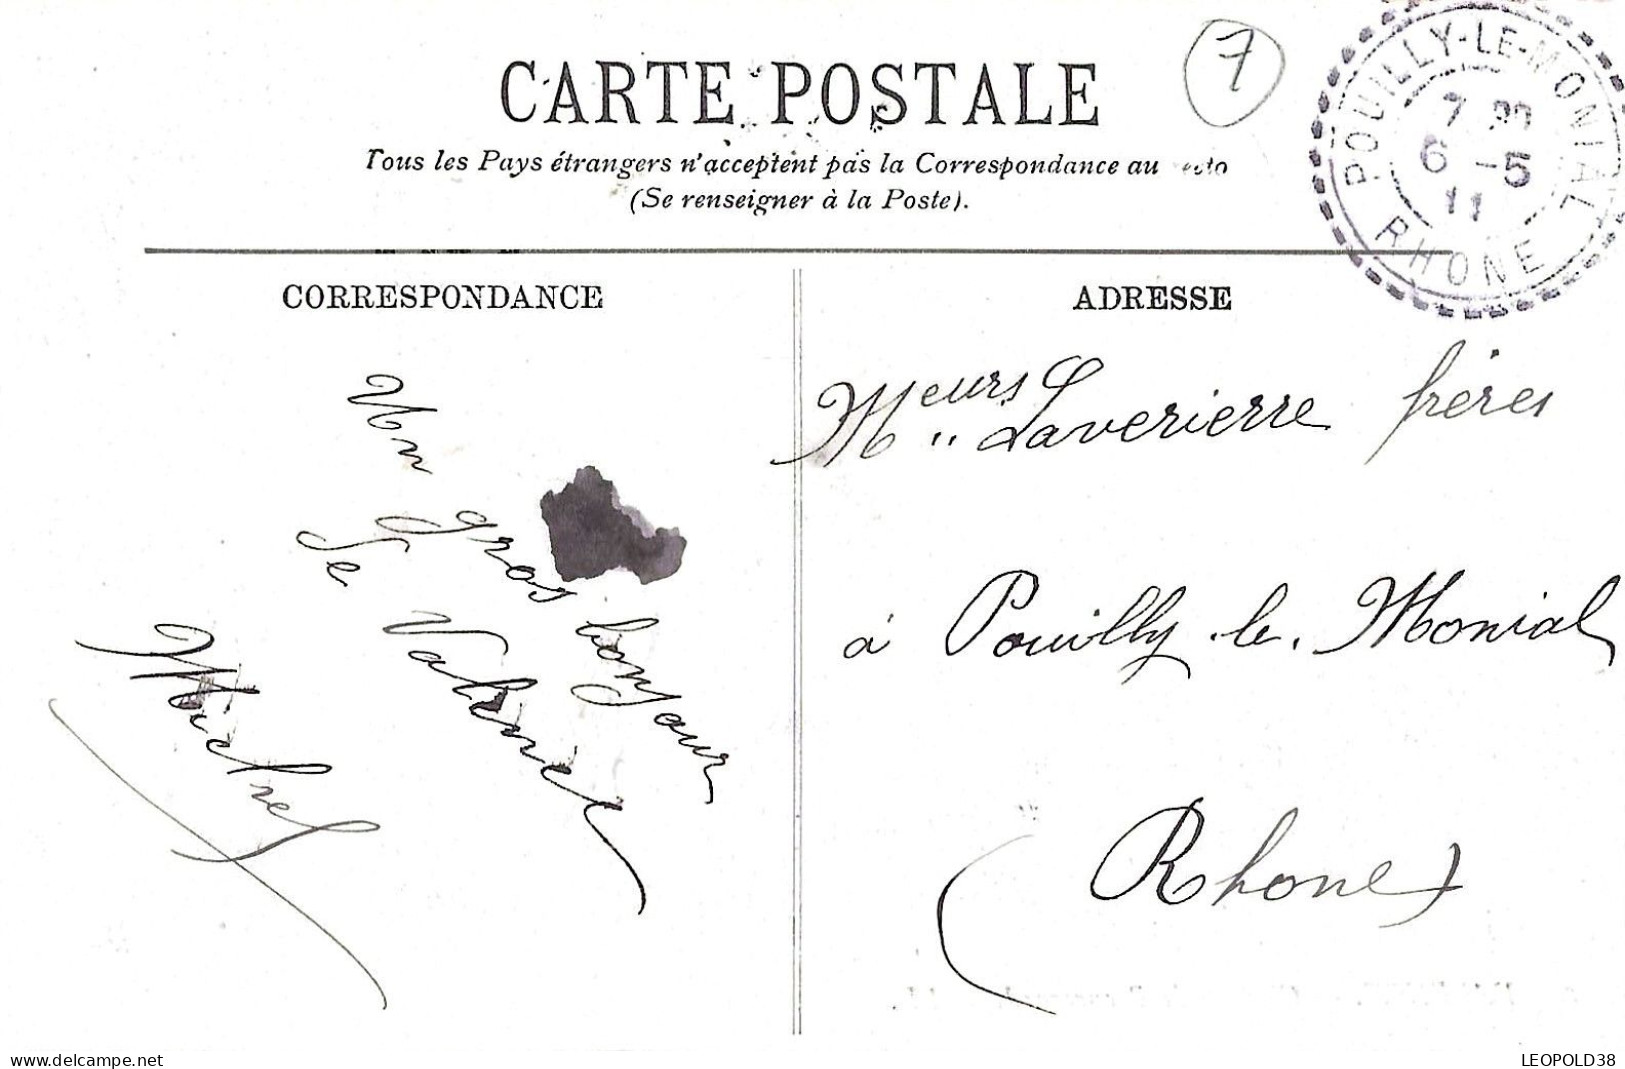 7
POUILLY-LE-MONIAL
7 30
6 -5
11
RHONE
CARTE POSTALE
Tous les Pays étrangers n'acceptent pas la Correspondance au recto
(Se renseigner à la Poste).
CORRESPONDANCE
ADRESSE
Un gros bonjour
de Valence
Michel
Meurs Laverierre frères
à Pouilly-le-Monial
(Rhone)
www.delcampe.net
LEOPOLD38